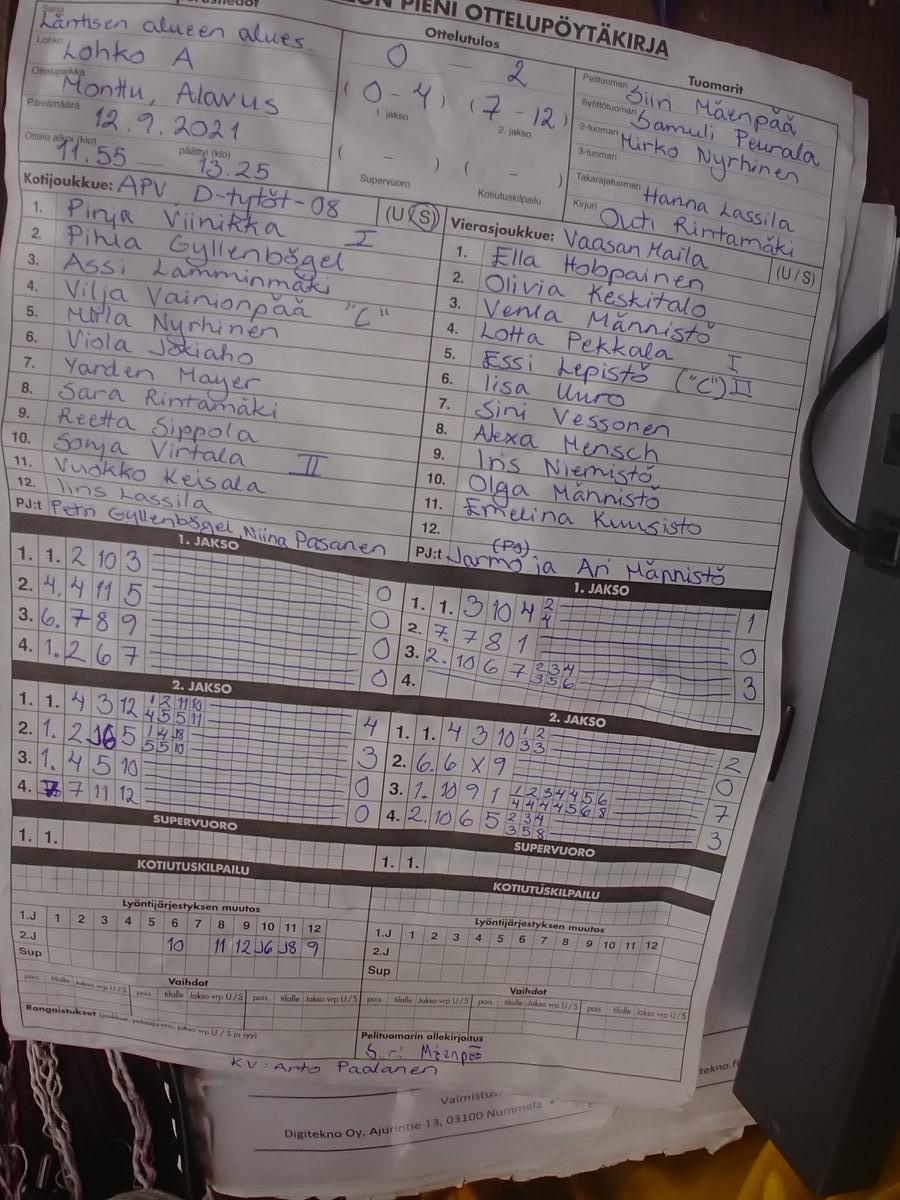 PIENI OTTELUPÖYTÄKIRJA
Sarja
Läntisen alueen alues.
Lohko
Lohko A
Ottelupaikka
Monttu, Alavus
Päivämäärä
12.9.2021
Ottelu alkoi (klo) päättyi (klo)
11.55 13.25
Ottelutulos
0 - 2
(0-4) (7-12)
1. jakso 2. jakso
( - ) ( - )
Supervuoro Kotiutuskilpailu
Tuomarit
Pelituoman Siiri Mäenpää
Syöttötuoman Samuli Peurala
2-tuoman Mirko Nyrhinen
3-tuoman
Takarajatuoman Hanna Lassila
Kirjuri Outi Rintamäki
Kotijoukkue: APV D-tytöt-08 (U/S)
1. Pinja Viinikka I
2. Pihla Gyllenbögel
3. Assi Lamminmäki
4. Vilja Vainionpää "C"
5. Milla Nyrhinen
6. Viola Jokiaho
7. Yarden Mayer
8. Sara Rintamäki
9. Reetta Sippola
10. Sonja Virtala II
11. Vuokko Keisala
12. Iiris Lassila
PJ:t Petri Gyllenbögel, Niina Pasanen
Vierasjoukkue: Vaasan Maila (U/S)
1. Ella Hobpainen
2. Olivia Keskitalo
3. Venla Männistö
4. Lotta Pekkala I
5. Essi Lepistö ("C") II
6. Iisa Uuro
7. Sini Vessonen
8. Alexa Mensch
9. Iris Niemistö
10. Olga Männistö
11. Emelina Kuusisto
12.
PJ:t Jarmo (PJ) ja Ari Männistö
1. JAKSO
1. 1. 2 10 3 0
2. 4. 4 11 5 0
3. 6. 7 8 9 0
4. 1. 2 6 7 0
2. JAKSO
1. 1. 4 3 12 1 2 11 10 4
4 5 5 11
2. 1. 2 J6 5 1 4 J8 3
5 5 10
3. 1. 4 5 10 0
4. 7 11 12 0
SUPERVUORO
1. 1.
KOTIUTUSKILPAILU
1. JAKSO
1. 1. 3 10 4 2 1
4
2. 7. 7 8 1 0
3. 2. 10 6 7 2 3 4 3
3 5 6
4.
2. JAKSO
1. 1. 4 3 10 1 2 2
3 3
2. 6. 6 X 9 0
3. 1. 10 9 1 1 2 3 4 4 5 6 7
4 4 4 4 5 6 8
4. 2. 10 6 5 2 3 4 3
3 5 8
SUPERVUORO
1. 1.
KOTIUTUSKILPAILU
Lyöntijärjestyksen muutos
1.J 1 2 3 4 5 6 7 8 9 10 11 12
2.J 10 11 12 J6 J8 9
Sup
Vaihdot
pois tilalle Jakso vrp U/S pois tilalle Jakso vrp U/S pois tilalle Jakso vrp U/S
Lyöntijärjestyksen muutos
1.J 1 2 3 4 5 6 7 8 9 10 11 12
2.J
Sup
Vaihdot
pois tilalle Jakso vrp U/S pois tilalle Jakso vrp U/S pois tilalle Jakso vrp U/S
Rangaistukset
Pelituomarin allekirjoitus
Siiri Mäenpää
KV: Arto Paalanen
Valmistus:
Digitekno Oy, Ajurintie 13, 03100 Nummela
tekno.f